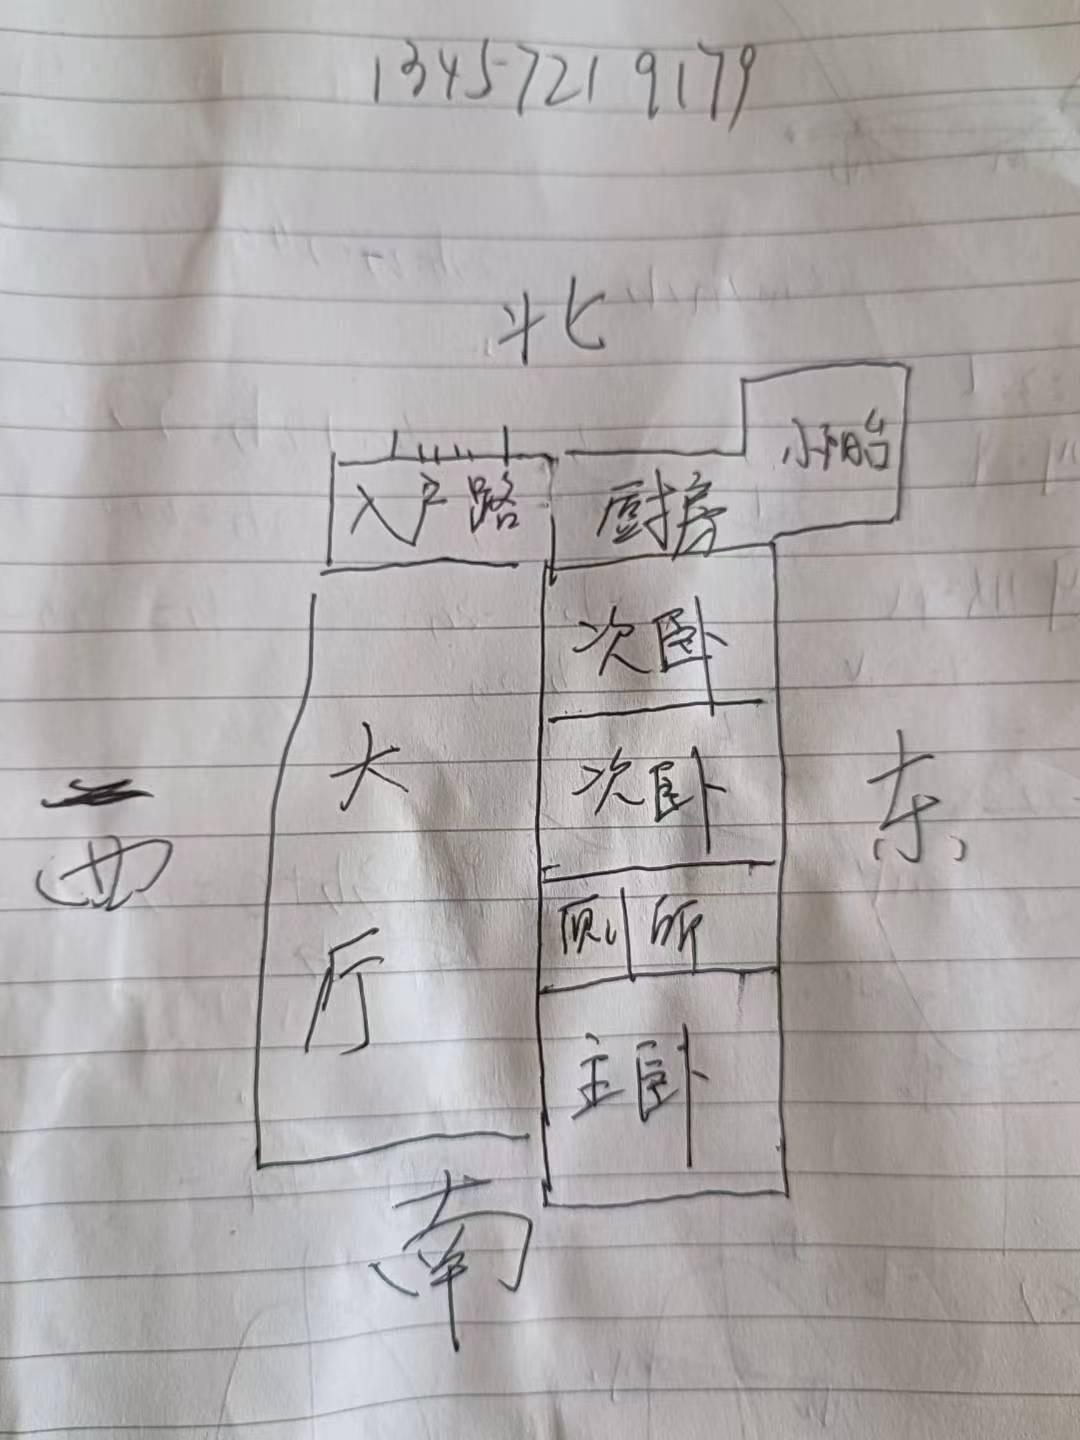 13457219179
北
入户路 厨房 小阳台
次卧
大 次卧 东
西
厅 厕所
主卧
南